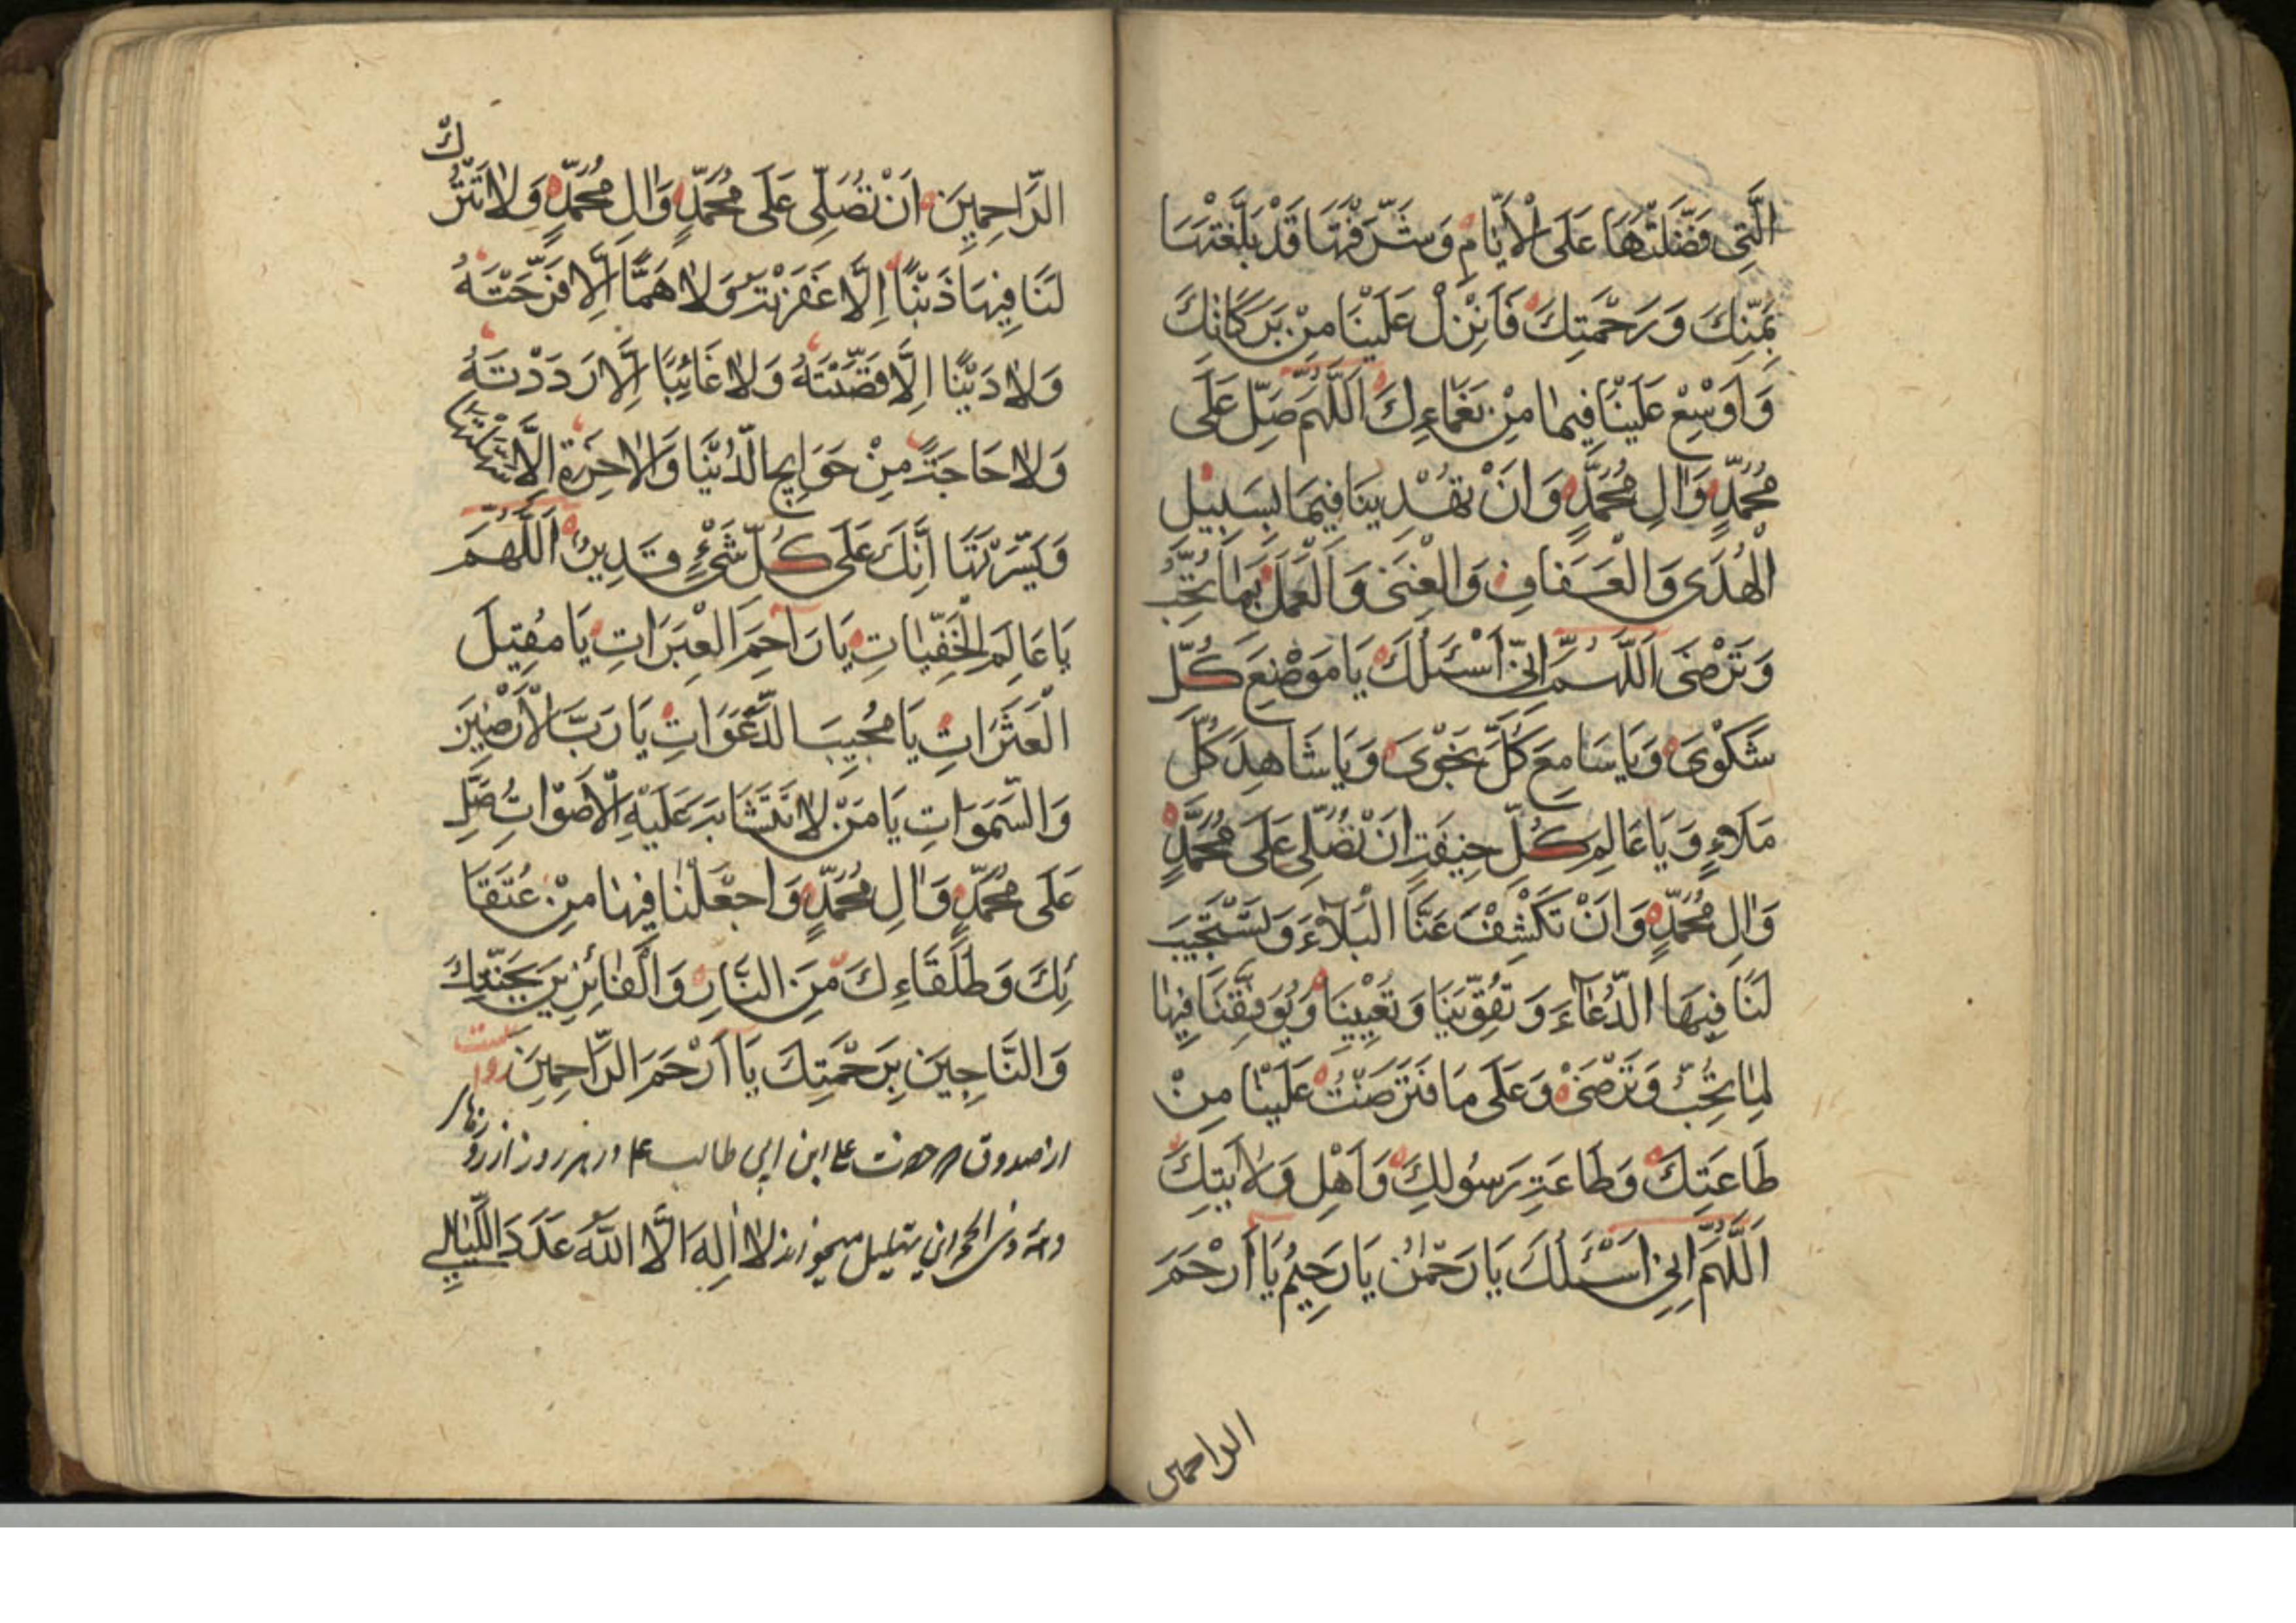 الَّتِي فَضَّلْتَهَا عَلَى الْأَيَّامِ وَشَرَّفْتَهَا قَدْ بَلَّغْتَهَا
بِمَنِّكَ وَرَحْمَتِكَ فَاَنْزِلْ عَلَيْنَا مِنْ بَرَكَاتِكَ
وَاَوْسِعْ عَلَيْنَا فِيهَا مِنْ نَعْمَاءِكَ اَللّٰهُمَّ صَلِّ عَلَى
مُحَمَّدٍ وَاٰلِ مُحَمَّدٍ وَاَنْ تَهْدِيَنَا فِيهَا بِسَبِيْلِ
الْهُدَى وَالْعَفَافِ وَالْغِنَى وَالْعَمَلِ بِمَا تُحِبُّ
وَتَرْضَى اَللّٰهُمَّ اِنِّي اَسْئَلُكَ يَا مَوْضِعَ كُلِّ
شَكْوَى وَيَا سَامِعَ كُلِّ نَجْوَى وَيَا شَاهِدَ كُلِّ
مَلَاءٍ وَيَا عَالِمَ كُلِّ خِيفَةٍ اَنْ تُصَلِّيَ عَلَى مُحَمَّدٍ
وَاٰلِ مُحَمَّدٍ وَاَنْ تَكْشِفَ عَنَّا الْبَلَآءَ وَتَسْتَجِيبَ
لَنَا فِيهَا الدُّعَآءَ وَتُقَوِّيَنَا وَتُعِيْنَنَا وَتُوَفِّقَنَا فِيهَا
لِمَا تُحِبُّ وَتَرْضَى وَعَلَى مَا فَتَرَضْتَ عَلَيْنَا مِنْ
طَاعَتِكَ وَطَاعَةِ رَسُولِكَ وَاَهْلِ وَلَايَتِكَ
اَللّٰهُمَّ اِنِّي اَسْئَلُكَ يَا رَحْمٰنُ يَا رَحِيْمُ يَا اَرْحَمَ
الراحمين
الرَّاحِمِيْنَ اَنْ تُصَلِّيَ عَلَى مُحَمَّدٍ وَاٰلِ مُحَمَّدٍ وَلَا تَتْرُكْ
لَنَا فِيهَا ذَنْبًا اِلَّا غَفَرْتَهُ وَلَا هَمًّا اِلَّا فَرَّجْتَهُ
وَلَا دَيْنًا اِلَّا قَضَيْتَهُ وَلَا غَائِبًا اِلَّا رَدَدْتَهُ
وَلَا حَاجَةً مِنْ حَوَايِجِ الدُّنْيَا وَالْاٰخِرَةِ اِلَّا سَهَّلْتَهَا
وَيَسَّرْتَهَا اِنَّكَ عَلَى كُلِّ شَيْءٍ قَدِيْرٌ اَللّٰهُمَّ
يَا عَالِمَ الْخَفِيَّاتِ يَا رَاحِمَ الْعَبَرَاتِ يَا مُقِيْلَ
الْعَثَرَاتِ يَا مُجِيبَ الدَّعَوَاتِ يَا رَبَّ الْأَرَضِيْنَ
وَالسَّمٰوَاتِ يَا مَنْ لَا تَتَشَابَهُ عَلَيْهِ الْأَصْوَاتُ صَلِّ
عَلَى مُحَمَّدٍ وَاٰلِ مُحَمَّدٍ وَاجْعَلْنَا فِيهَا مِنْ عُتَقَا
ئِكَ وَطُلَقَاءِكَ مِنَ النَّارِ وَالْفَائِزِيْنَ بِجَنَّتِكَ
وَالنَّاجِيْنَ بِرَحْمَتِكَ يَا اَرْحَمَ الرَّاحِمِيْنَ
حضرت علی ابن ابی طالب ع در هر روز از روزهای
دهه ذی الحجه این تهلیل میخواند لَا اِلٰهَ اِلَّا اللّٰهُ عَدَدَ اللَّيَالِي